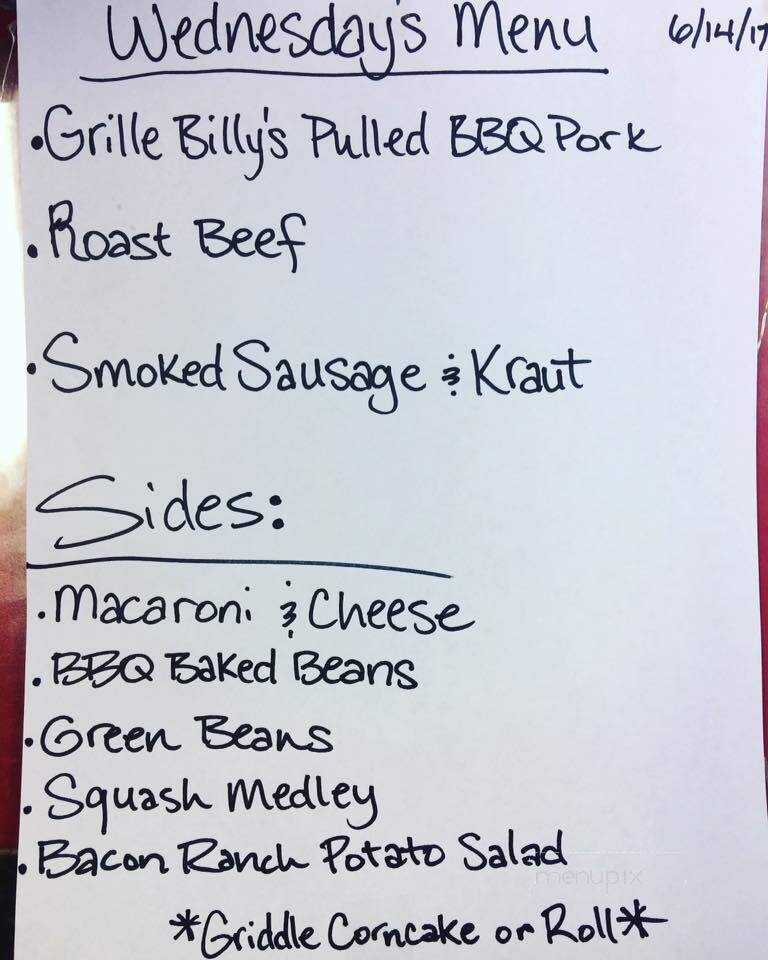 Wednesday's Menu 6/14/17
•Grille Billy's Pulled BBQ Pork
•Roast Beef
•Smoked Sausage & Kraut
Sides:
•Macaroni & Cheese
•BBQ Baked Beans
•Green Beans
•Squash Medley
•Bacon Ranch Potato Salad
menupix
*Griddle Corncake or Roll*